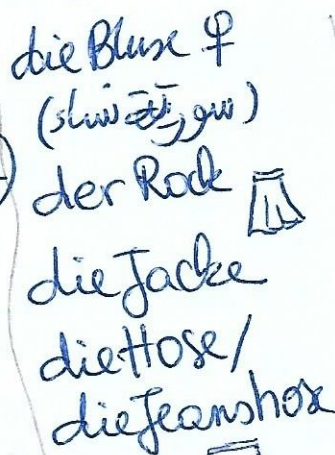 die Bluse ♀
der Rock
die Jacke
die Hose/
die Jeanshose